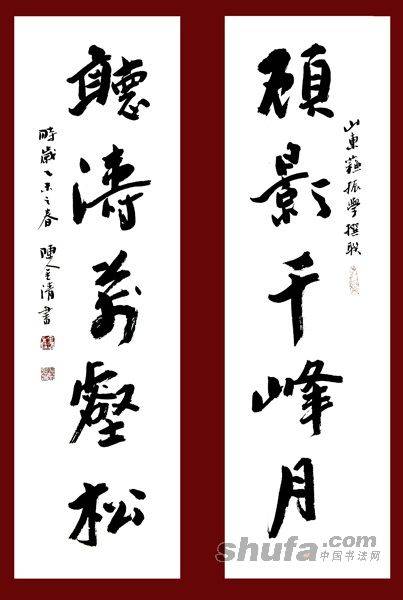 顧影千峰月
山東蘇振學撰联
聽濤萬壑松
時歲乙未之春 陳清書
shufa.com
中国书法网